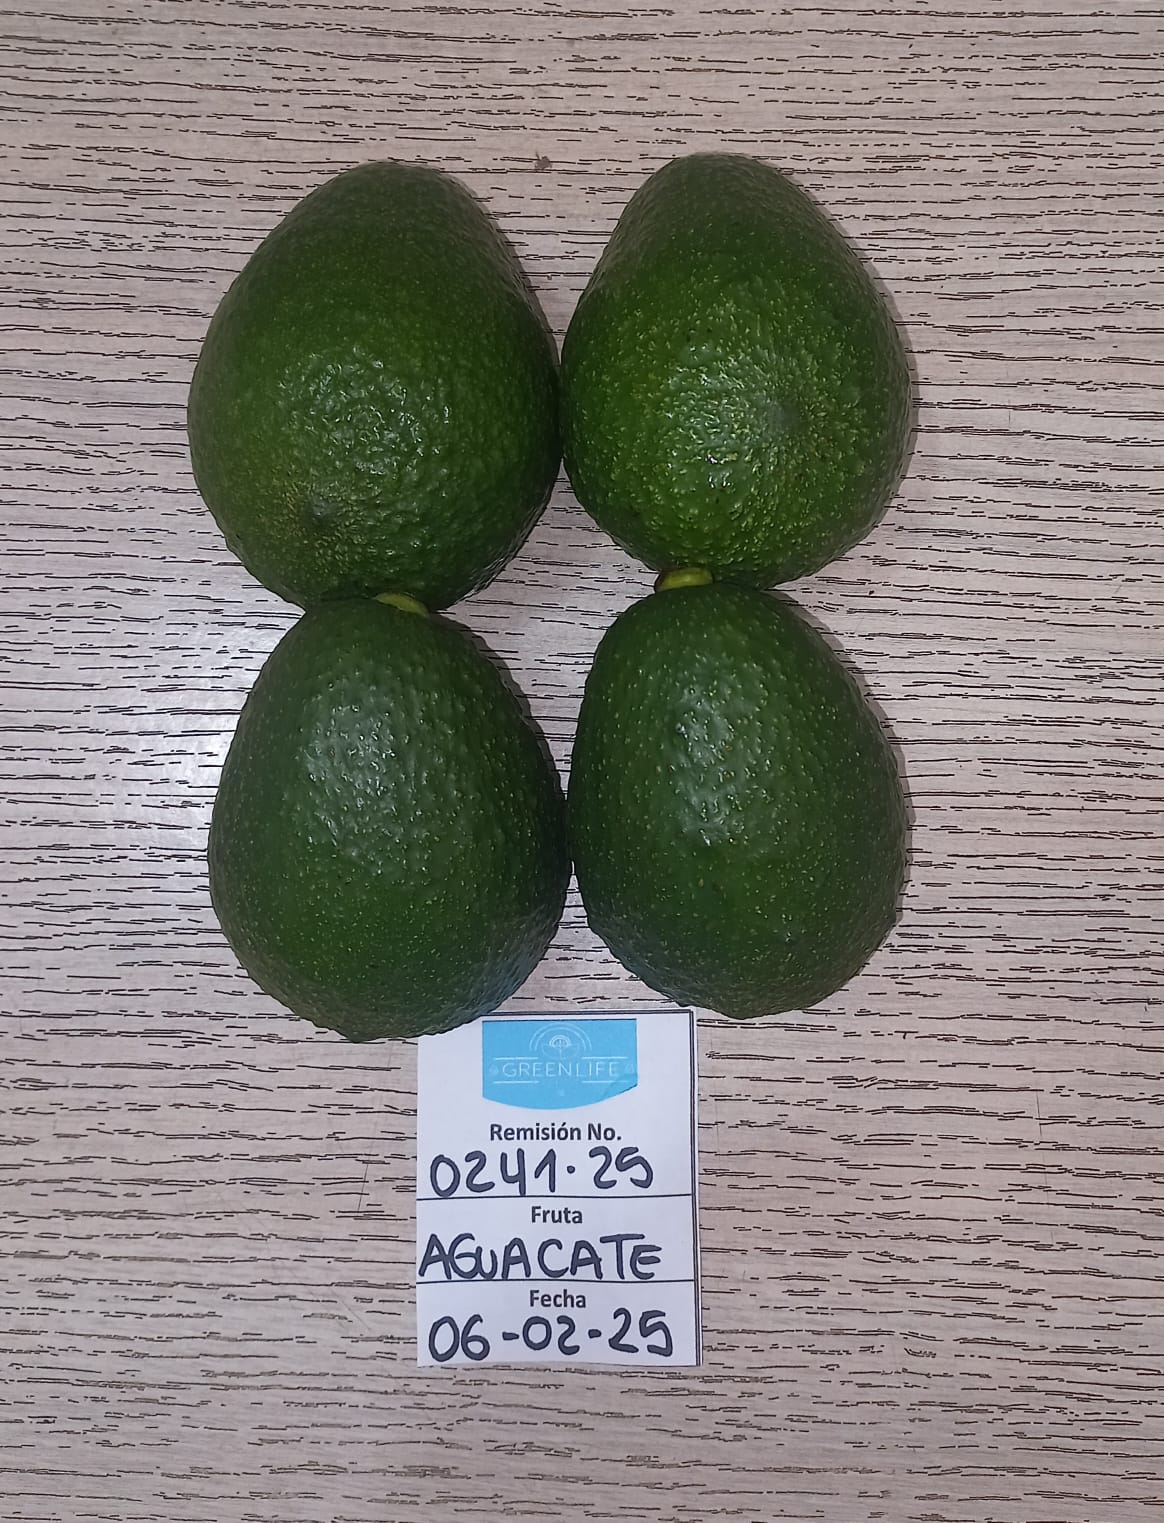 GREENLIFE
Remisión No.
0241·25
Fruta
AGUACATE
Fecha
06-02-25